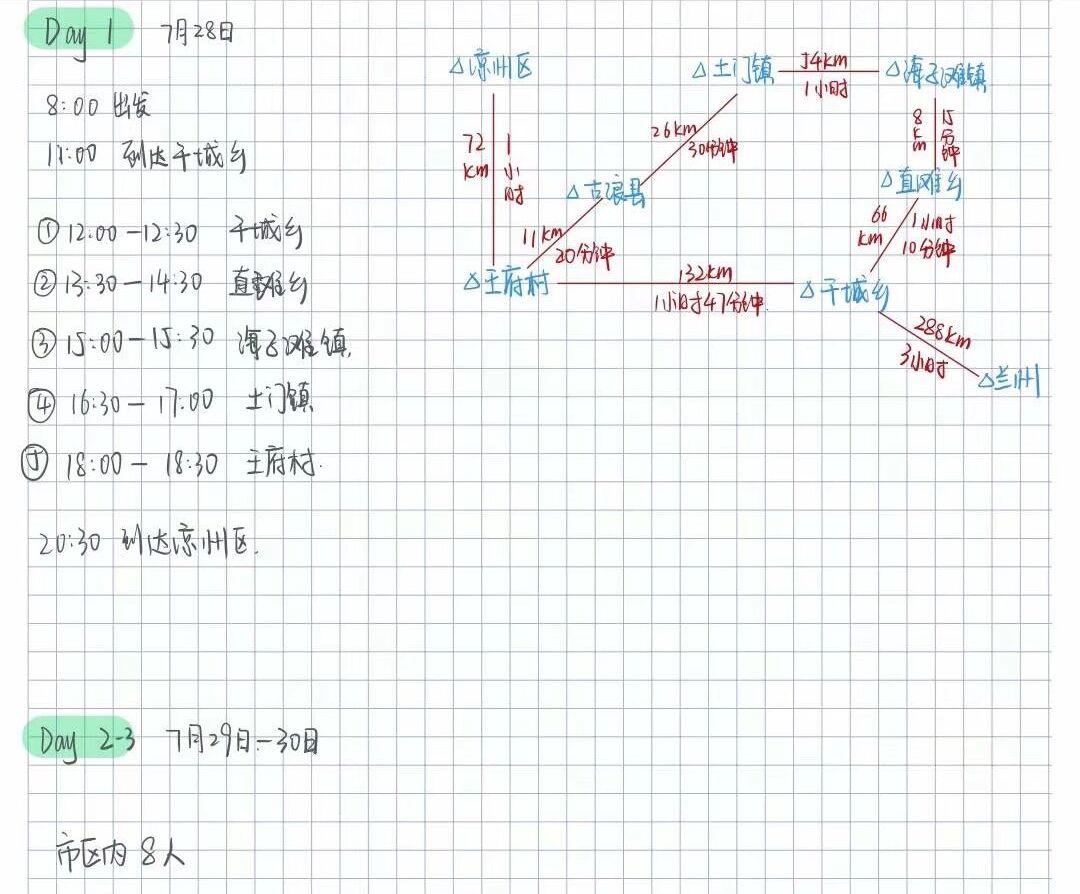 Day 1 7月28日
8:00 出发
11:00 到达干城乡
① 12:00—12:30 干城乡
② 13:30—14:30 直滩乡
③ 15:00—15:30 海子滩镇.
④ 16:30—17:00 土门镇
⑤ 18:00—18:30 王府村.
20:30 到达凉州区.
△凉州区
72km
1小时
△王府村
11km
20分钟
△古浪县
26km
30分钟
△土门镇
54km
1小时
△海子滩镇
8km
15分钟
△直滩乡
66km
1小时10分钟
132km
1小时47分钟.
△干城乡
288km
3小时
△兰州
Day 2-3 7月29日—30日
市区内 8人